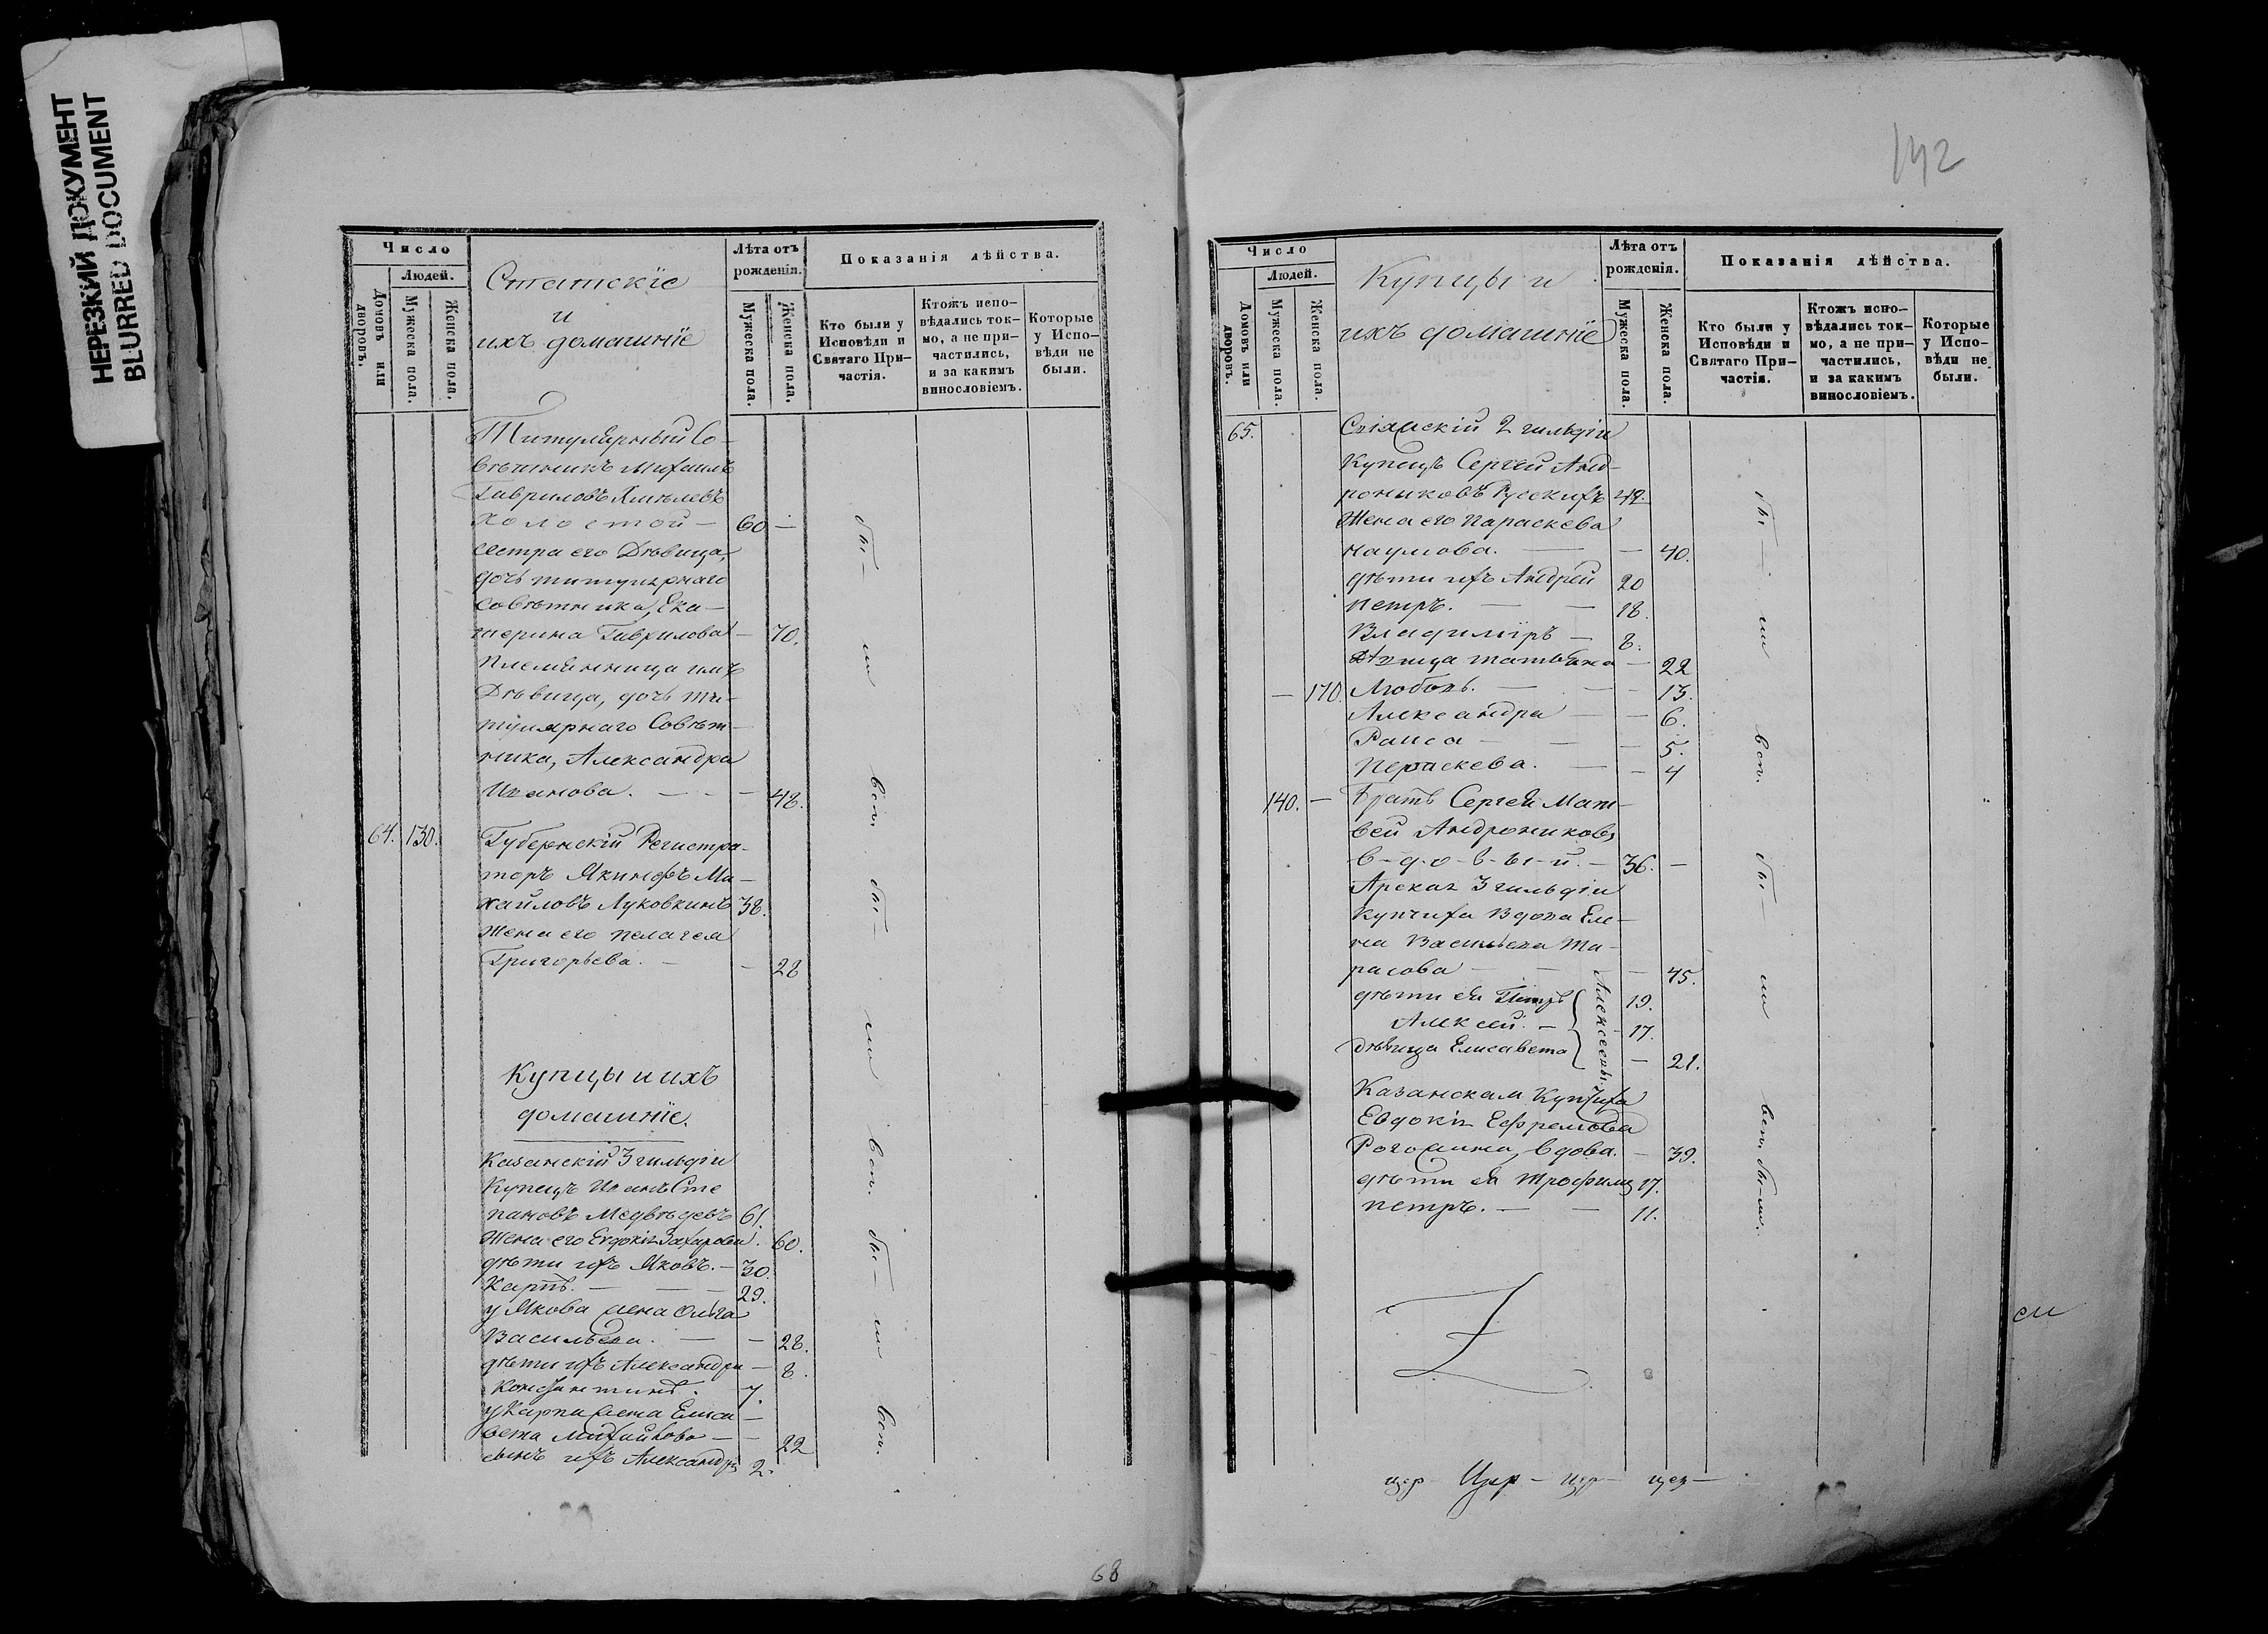 НЕРЕЗКИЙ ДОКУМЕНТ
BLURRED DOCUMENT
Число
Людей.
Домовъ или дворовъ.
Мужеска пола.
Женска пола.
Статскіе
и
ихъ домашніе
Лѣта отъ рожденія.
Мужеска пола.
Женска пола.
Показанія дѣйства.
Кто были у Исповѣди и Святаго Причастія.
Ктожъ исповѣдались токмо, а не причастились, и за какимъ винословіемъ.
Которые у Исповѣди не были.
Титулярный Со-
вѣтникъ Михаилъ
Гавриловъ Хмѣлевъ
холостой — 60 —
сестра его Дѣвица,
дочь титулярнаго
совѣтника, Ека-
терина Гаврилова — 70.
Племянница ихъ
Дѣвица, дочь ти-
тулярнаго Совѣт-
ника, Александра
Иванова. — — 48.
64. 130. Губернскій Регистра-
торъ Якинфъ Ми-
хайловъ Луковкинъ 38.
Жена его Пелагея
Григорьева. — — 28
Купцы и ихъ
домашніе.
Казанскій 3 гильдіи
Купецъ Иванъ Сте
пановъ Медвѣдевъ 61.
Жена его Евдокія Захарова. 60.
дѣти ихъ Яковъ. — 30.
Карпъ. — — 29.
у Якова жена Ольга
Васильева. — — 28.
дѣти ихъ Александра — 8.
Константинъ. 7.
у Карпа жена Елиса —
вета Михайлова — — 22
сынъ ихъ Александръ 2.
бы — ли вѣп. бы — ли вѣп. бы — ли вѣп.
68
142
Число
Людей.
Домовъ или дворовъ.
Мужеска пола.
Женска пола.
Купцы и
ихъ домашніе
Лѣта отъ рожденія.
Мужеска пола.
Женска пола.
Показанія дѣйства.
Кто были у Исповѣди и Святаго Причастія.
Ктожъ исповѣдались токмо, а не причастились, и за какимъ винословіемъ.
Которые у Исповѣди не были.
65. 2 гильдіи
Купецъ Сергей Анд-
рониковъ Русскихъ 42.
Жена его Параскева
Наумова. — — 40.
дѣти ихъ Андрей 20
Петръ. — — 18.
Владиміръ — 8.
дѣвица Татьяна — 22
— 170. Любовь. — — — 13.
Александра — — 6.
Раиса — — — 5.
Пераскева. — — 4
140. — Братъ Сергея Мат-
вей Андрониковъ
в-д-о-в-ы-й. — 36. —
Арская 3 гильдіи
Купчиха вдова Еле-
на Васильева Та-
расова — — — 45.
дѣти ея Петръ 19.
Алексей. — 17.
дѣвица Елисавета — 21.
Алексеевы.
Казанская Купчиха
Евдокія Ефремова
Рогожина, вдова. — 39.
дѣти ея Трофимъ 17.
Петръ. — — 11.
бы — ли вѣп. бы — ли вѣп. бы-ли.